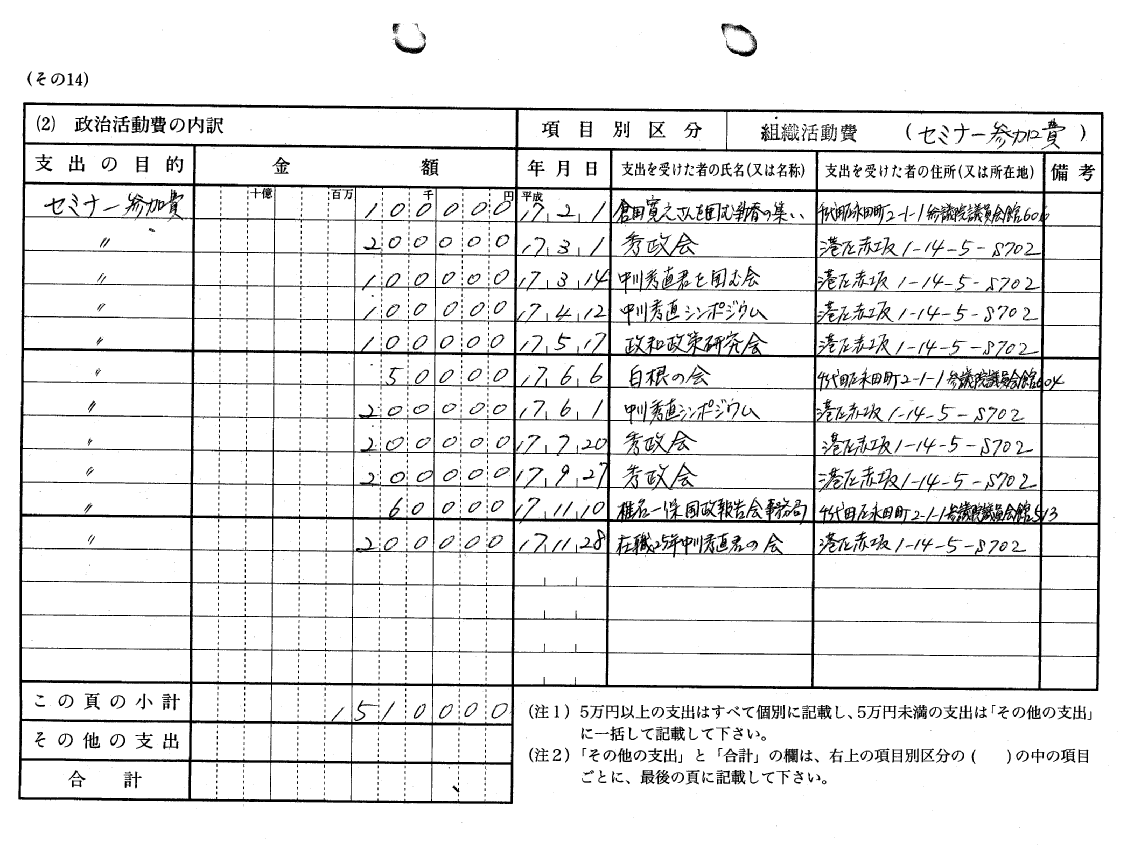 (その14)
(2) 政治活動費の内訳 項目別区分 組織活動費 (セミナー参加費)
支出の目的 金額 年月日 支出を受けた者の氏名(又は名称) 支出を受けた者の住所(又は所在地) 備考
十億 百万 千 円 平成
セミナー参加費 100000 17,2,1 倉田寛之さんを囲む新春の集い 千代田区永田町2-1-1参議院議員会館606
〃 200000 17,3,1 秀政会 港区赤坂1-14-5-S702
〃 100000 17,3,14 中川秀直君を囲む会 港区赤坂1-14-5-S702
〃 100000 17,4,12 中川秀直シンポジウム 港区赤坂1-14-5-S702
〃 100000 17,5,17 政和政策研究会 港区赤坂1-14-5-S702
〃 50000 17,6,6 白根の会 千代田区永田町2-1-1参議院議員会館604
〃 200000 17,6,1 中川秀直シンポジウム 港区赤坂1-14-5-S702
〃 200000 17,7,20 秀政会 港区赤坂1-14-5-S702
〃 200000 17,9,27 秀政会 港区赤坂1-14-5-S702
〃 60000 17,11,10 椎名一保国政報告会事務局 千代田区永田町2-1-1参議院議員会館513
〃 200000 17,11,28 在職25年中川秀直君の会 港区赤坂1-14-5-S702
この頁の小計 1510000
その他の支出
合計
(注1) 5万円以上の支出はすべて個別に記載し、5万円未満の支出は「その他の支出」
に一括して記載して下さい。
(注2) 「その他の支出」と「合計」の欄は、右上の項目別区分の( )の中の項目
ごとに、最後の頁に記載して下さい。